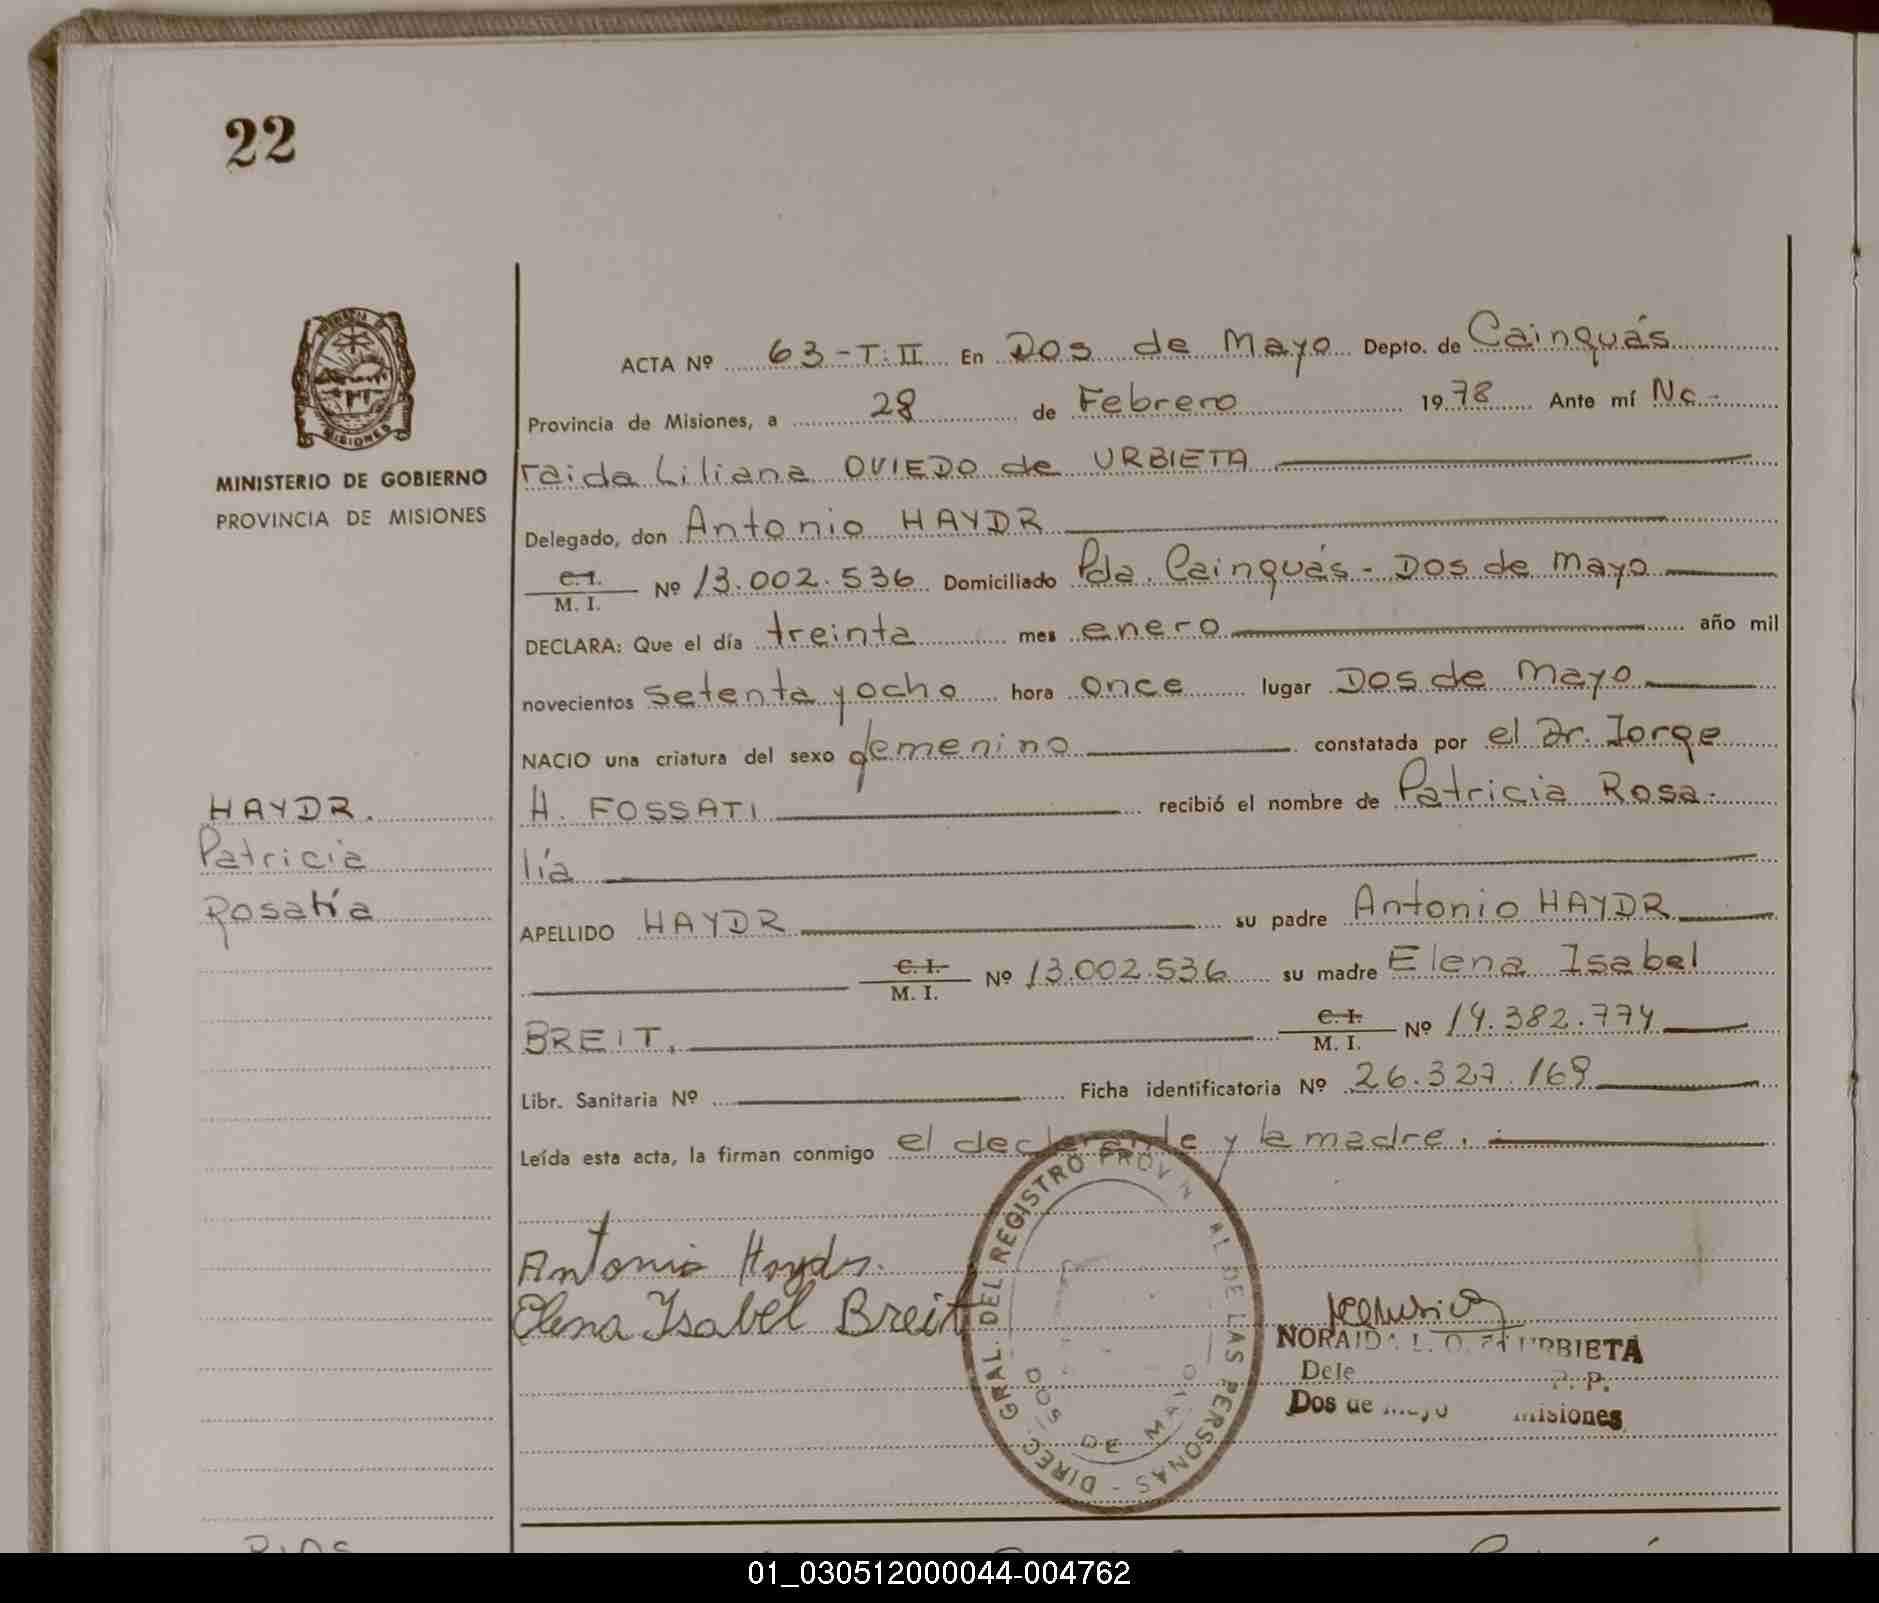 22
MISIONES
MINISTERIO DE GOBIERNO
PROVINCIA DE MISIONES
HAYDR.
Patricia
Rosalía
ACTA Nº 63-T.II En Dos de Mayo Depto. de Cainguás
Provincia de Misiones, a 28 de Febrero 1978 Ante mí No-
raida Liliana OVIEDO de URBIETA
Delegado, don Antonio HAYDR
C.I.
M. I. Nº 13.002.536 Domiciliado Pda. Cainguás - Dos de Mayo
DECLARA: Que el día treinta mes enero año mil
novecientos setenta y ocho hora once lugar Dos de Mayo
NACIO una criatura del sexo femenino constatada por el Dr. Jorge
H. FOSSATI recibió el nombre de Patricia Rosa-
lía
APELLIDO HAYDR su padre Antonio HAYDR
C. I.
M. I. Nº 13.002.536 su madre Elena Isabel
BREIT. C. I.
M. I. Nº 14.382.774
Libr. Sanitaria Nº Ficha identificatoria Nº 26.327.169
Leída esta acta, la firman conmigo el declarante y la madre.
Antonio Haydr.
Elena Isabel Breit
DIREC. GRAL. DEL REGISTRO PROVINCIAL DE LAS PERSONAS -
DOS DE MAYO
NORAIDA L. O. de URBIETA
Dos de Mayo Misiones
01_030512000044-004762